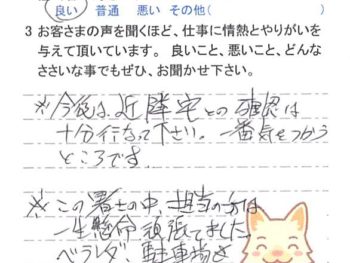 良い 普通 悪い その他(          )
3 お客さまの声を聞くほど、仕事に情熱とやりがいを
与えて頂いています。 良いこと、悪いこと、どんな
ささいな事でもぜひ、お聞かせ下さい。
※今後は、近隣宅との確認は
十分行なって下さい。一番気をつかう
ところです。
※この暑さの中、担当の方は
一生懸命頑張ってました。
ベランダ、駐車場を